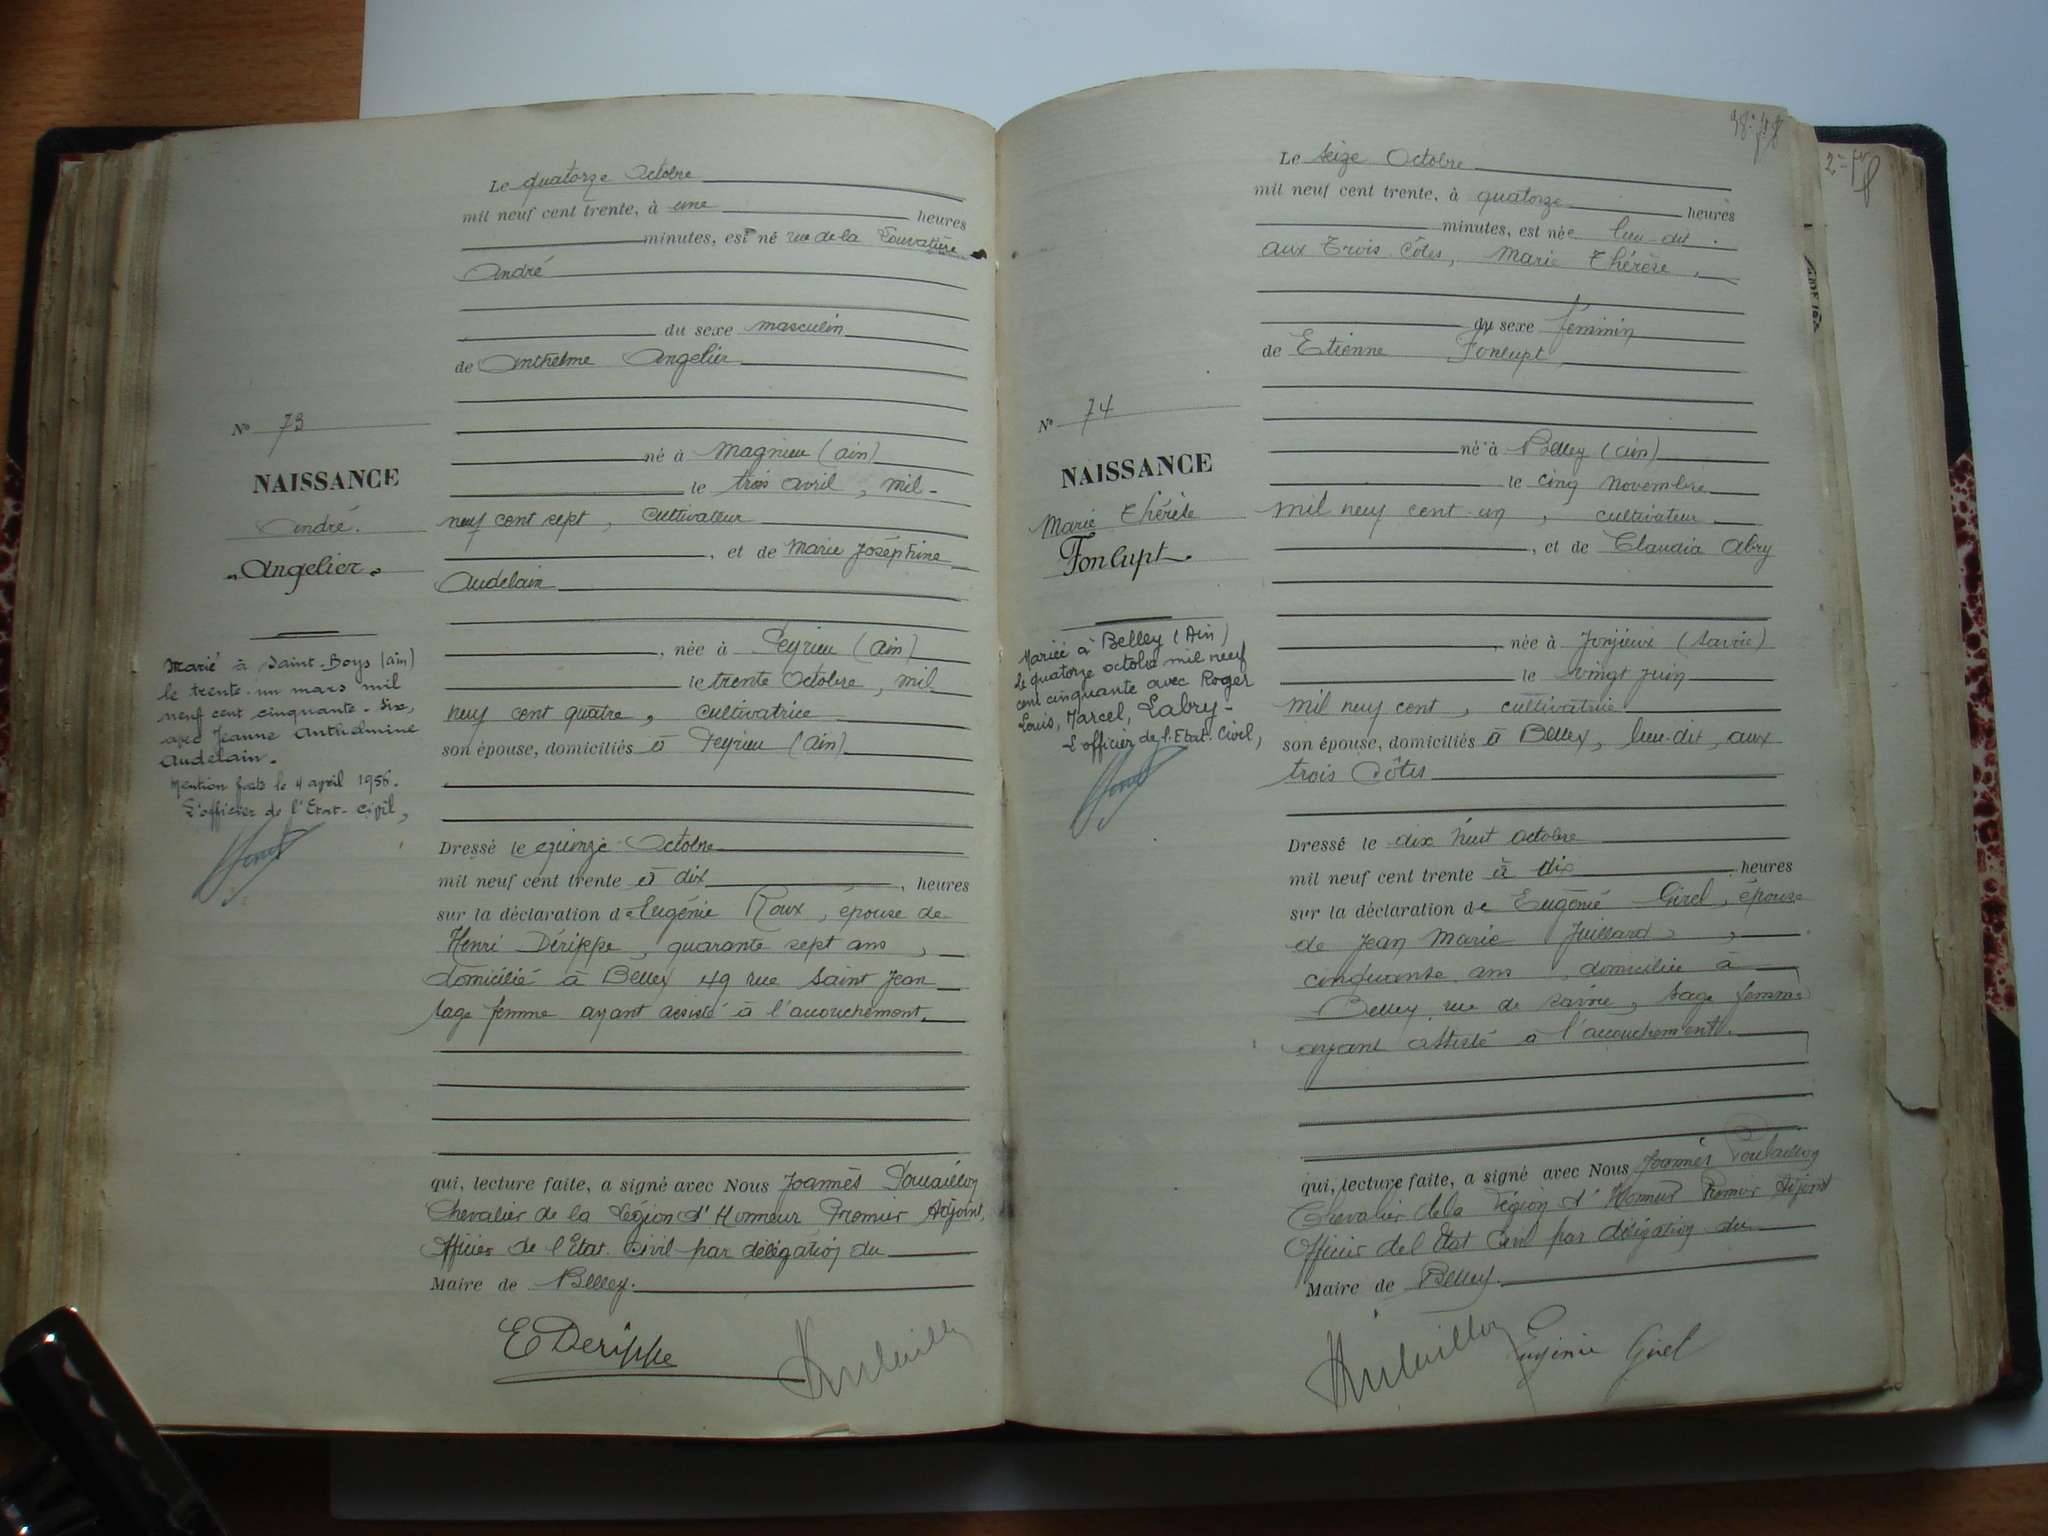 Le quatorze Octobre
mil neuf cent trente, à une heures
minutes, est né rue de la Louvatière
André
du sexe masculin
de Anthelme Angelier
né à Magnieu (Ain)
le trois avril, mil-
neuf cent sept, cultivateur
, et de Marie Joséphine
Audelain
, née à Peyrieu (Ain)
le trente Octobre, mil
neuf cent quatre, cultivatrice
son épouse, domiciliés à Peyrieu (Ain)
Dressé le quinze Octobre
mil neuf cent trente à dix, heures
sur la déclaration de Eugénie Roux, épouse de
Henri Dérippe, quarante sept ans,
domicilié à Belley 49 rue Saint Jean
sage femme ayant assisté à l'accouchement.
qui, lecture faite, a signé avec Nous Joannès
Chevalier de la Légion d'Honneur Premier Adjoint,
Officier de l'Etat Civil par délégation du
Maire de Belley.
E Derippe
No 73
NAISSANCE
André.
Angelier
Marié à Saint-Boys (Ain)
le trente-un mars mil
neuf cent cinquante-six,
avec Jeanne Anthelmine
Audelain.
Mention faite le 4 april 1956.
L'officier de l'Etat-Civil,
Le seize Octobre
mil neuf cent trente, à quatorze heures
minutes, est née lieu dit
aux Trois Côtes, Marie Thérèse,
du sexe féminin
de Etienne Fonlupt
né à Belley (Ain)
le cinq novembre
mil neuf cent un, cultivateur
, et de Claudia Abry
, née à Jonjieux (Savoie)
le vingt juin
mil neuf cent, cultivatrice
son épouse, domiciliés à Belley, lieu-dit, aux
trois Côtes
Dressé le dix huit octobre
mil neuf cent trente à dix heures
sur la déclaration de Eugénie Girel, épouse
de Jean Marie Juillard,
cinquante ans, domiciliée à
Belley, rue de Savoie, sage femme
ayant assisté à l'accouchement.
qui, lecture faite, a signé avec Nous Joannès
Chevalier de la Légion d'Honneur Premier Adjoint
Officier de l'Etat Civil par délégation du
Maire de Belley.
Eugénie Girel
No 74
NAISSANCE
Marie Thérèse
Fonlupt
Mariée à Belley (Ain)
le quatorze octobre mil neuf
cent cinquante avec Roger
Louis, Marcel, Labry-
L'officier de l'Etat-Civil,